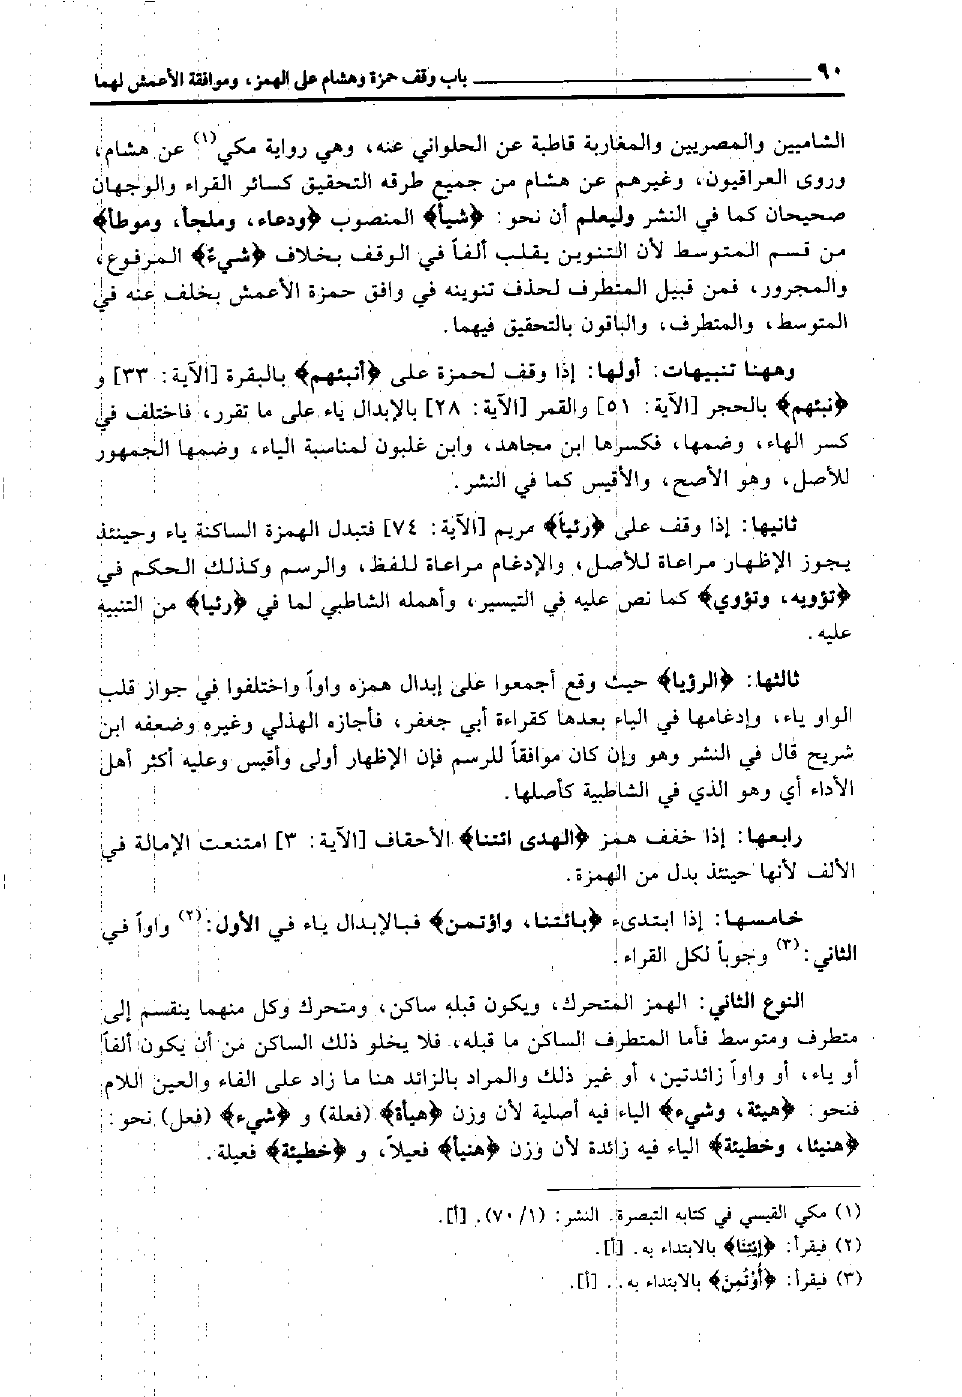 ٩٠ باب وقف حمزة وهشام على الهمز، وموافقة الأعمش لهما
الشاميين والمصريين والمغاربة قاطبة عن الحلواني عنه، وهي رواية مكي(١) عن هشام،
وروى العراقيون، وغيرهم عن هشام من جميع طرقه التحقيق كسائر القراء والوجهان
صحيحان كما في النشر وليعلم أن نحو: ﴿شيأ﴾ المنصوب ﴿ودعاء، وملجأ، وموطأ﴾
من قسم المتوسط لأن التنوين يقلب ألفاً في الوقف بخلاف ﴿شيءٌ﴾ المرفوع،
والمجرور، فمن قبيل المتطرف لحذف تنوينه في وافق حمزة الأعمش بخلف عنه في
المتوسط، والمتطرف، والباقون بالتحقيق فيهما.
وههنا تنبيهات: أولها: إذا وقف لحمزة على ﴿أنبئهم﴾ بالبقرة [الآية: ٣٣] و
﴿نبئهم﴾ بالحجر [الآية: ٥١] والقمر [الآية: ٢٨] بالإبدال ياء على ما تقرر، فاختلف في
كسر الهاء، وضمها، فكسرها ابن مجاهد، وابن غلبون لمناسبة الياء، وضمها الجمهور
للأصل، وهو الأصح، والأقيس كما في النشر.
ثانيها: إذا وقف على ﴿رئياً﴾ مريم [الآية: ٧٤] فتبدل الهمزة الساكنة ياء وحينئذ
يجوز الإظهار مراعاة للأصل، والإدغام مراعاة للفظ، والرسم وكذلك الحكم في
﴿تؤويه، وتؤوي﴾ كما نص عليه في التيسير، وأهمله الشاطبي لما في ﴿رئيا﴾ من التنبيه
عليه.
ثالثها: ﴿الرؤيا﴾ حيث وقع أجمعوا على إبدال همزه واواً واختلفوا في جواز قلب
الواو ياء، وإدغامها في الياء بعدها كقراءة أبي جعفر، فأجازه الهذلي وغيره وضعفه ابن
شريح قال في النشر وهو وإن كان موافقاً للرسم فإن الإظهار أولى وأقيس وعليه أكثر أهل
الأداء أي وهو الذي في الشاطبية كأصلها.
رابعها: إذا خفف همز ﴿الهدى ائتنا﴾ الأحقاف [الآية: ٣] امتنعت الإمالة في
الألف لأنها حينئذ بدل من الهمزة.
خامسها: إذا ابتدىء ﴿بائتنا، واؤتمن﴾ فبالإبدال ياء في الأول:(٢) واواً في
الثاني:(٣) وجوباً لكل القراء.
النوع الثاني: الهمز المتحرك، ويكون قبله ساكن، ومتحرك وكل منهما ينقسم إلى
متطرف ومتوسط فأما المتطرف الساكن ما قبله، فلا يخلو ذلك الساكن من أن يكون ألفاً
أو ياء، أو واواً زائدتين، أو غير ذلك والمراد بالزائد هنا ما زاد على الفاء والعين اللام
فنحو: ﴿هيئة، وشيء﴾ الياء فيه أصلية لأن وزن ﴿هيأة﴾ (فعلة) و ﴿شيء﴾ (فعل) نحو:
﴿هنيئا، وخطيئة﴾ الياء فيه زائدة لأن وزن ﴿هنيأ﴾ فعيلاً، و ﴿خطيئة﴾ فعيلة.
(١) مكي القيسي في كتابه التبصرة. النشر: (٧٠/١). [أ].
(٢) فيقرأ: ﴿إيْتِنَا﴾ بالابتداء به. [أ].
(٣) فيقرأ: ﴿أُوْتُمِنَ﴾ بالابتداء به. [أ].